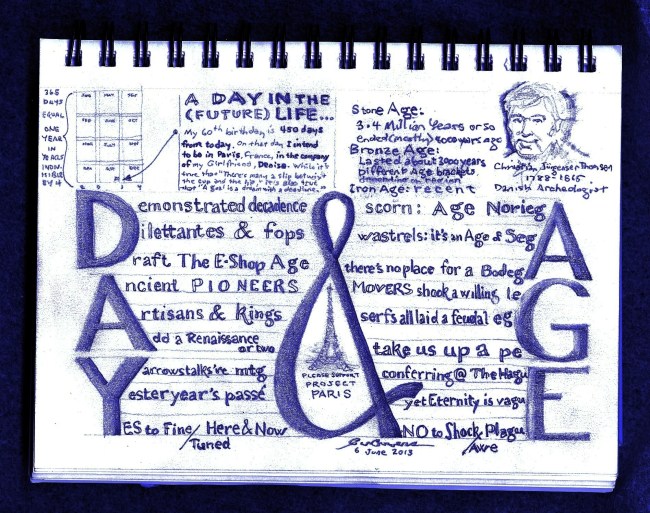 365
DAYS
EQUAL
ONE
YEAR
IN
YEARS
BY 4
A DAY IN THE
(FUTURE) LIFE...
My 60th birthday is 450 days
from today. On that day I intend
to be in Paris, France, in the company
of my Girlfriend, Denise. While it's
true that "There's many a slip betwixt
the cup and the lip," it's also true
that "A goal is a dream with a deadline."
Stone Age:
3.4 Million Years or so
ended (mostly) 4000 years ago
Bronze Age:
Lasted about 3000 years
Different Age brackets
Iron Age: recent
Christian Jürgensen Thomsen
1788-1865
Danish Archeologist
DAY & AGE
emonstrated decadence
ilettantes & fops
raft The E-Shop Age
ncient PIONEERS
rtisans & Kings
dd a Renaissance
or two
arrowstalks're mtg
esteryear's passé
ES to Fine/Tuned Here & Now
scorn: Age Norieg
wastrels: it's an Age of Seg
there's no place for a Bodeg
MOVERS shock a willing le
serfs all laid a feudal eg
take us up a pe
conferring @ The Hagu
yet Eternity is vagu
NO to Shock/Awe Plagu
PLEASE SUPPORT
PROJECT
PARIS
6 June 2013